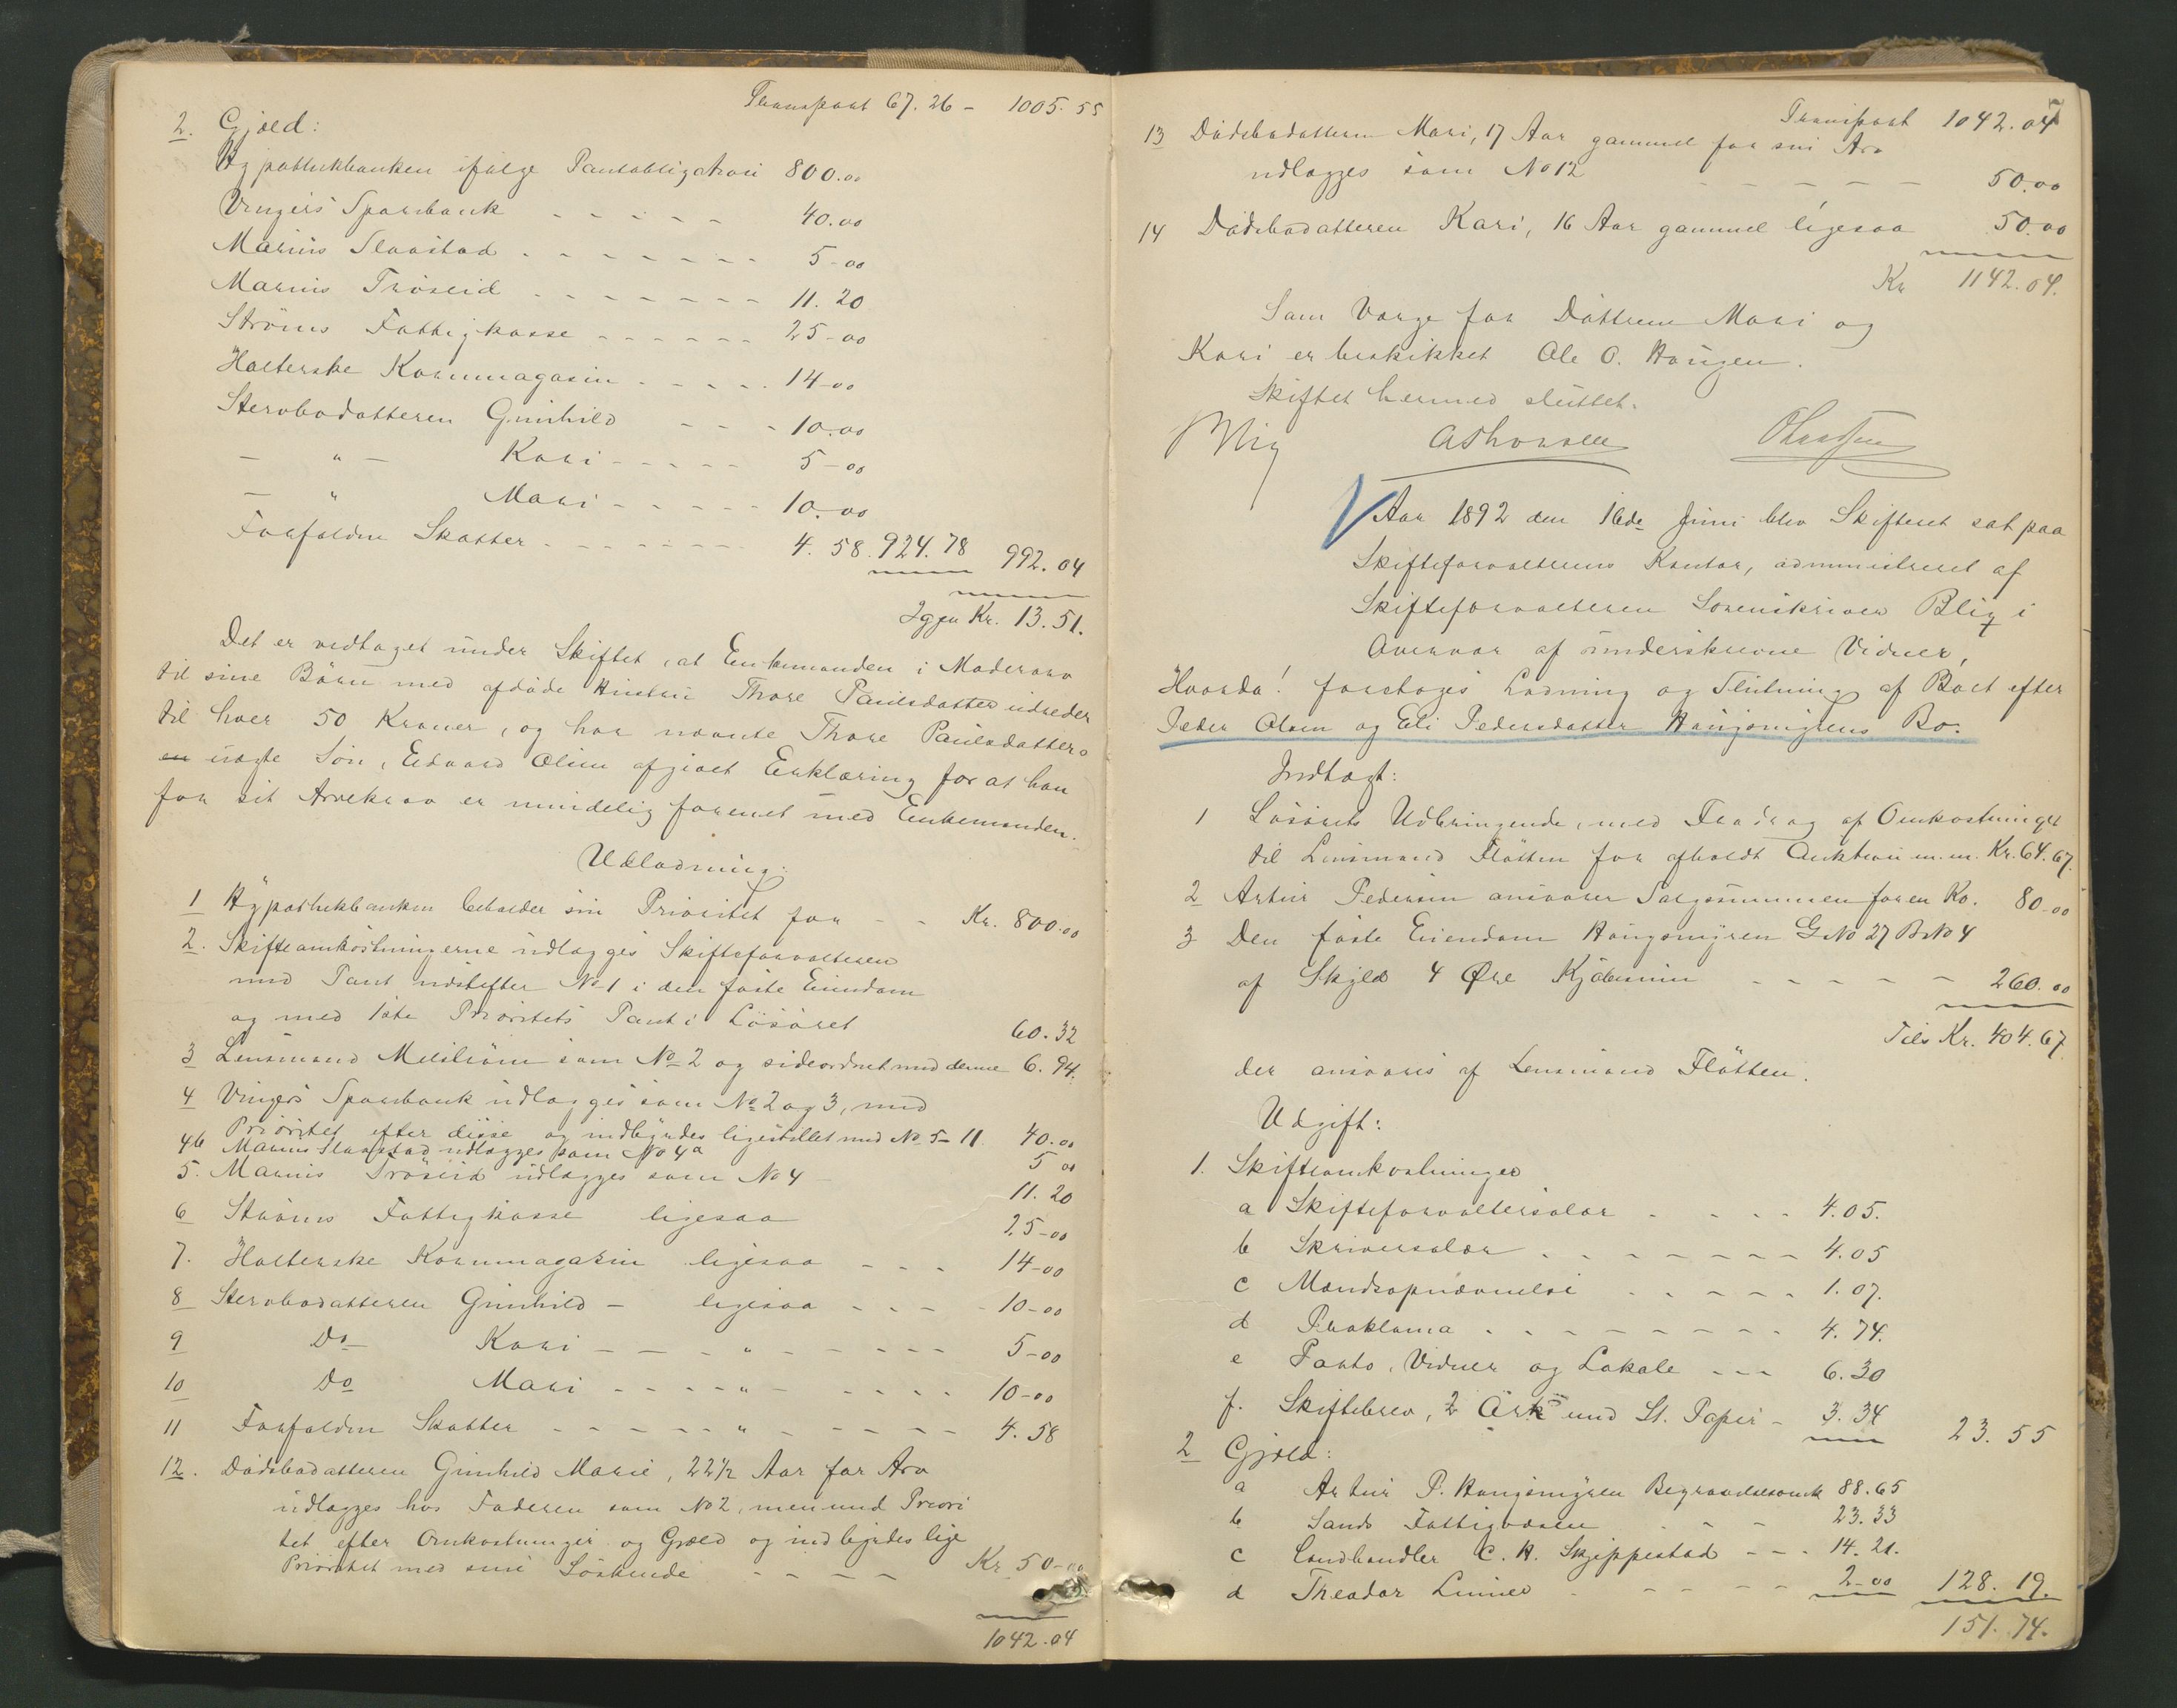 Transport 67.26 - 1005.55
2. Gjæld:
Hypothekbanken ifølge Pantobligation 800.00
Vingers Sparebank - - - - - 40.00
Marius Slaastad - - - - - - - 5-00
Marius Trøseid - - - - - - - 11.20
Strøms Fattigkasse - - - - - - 25-00
Holterske Kornmagasin - - - - - 14-00
Stervbodatteren Gunhild - - - 10.00
- " - Kari - - - - - 5-00
- " Mari - - - - - 10.00
Forfaldne Skatter - - - - - - - 4.58. 924.78 992.04
Igjen Kr. 13.51.
Det er vedtaget under Skiftet, at Enkemanden i Modrearv
til sine Børn med afdøde Hustru Thore Paulsdatter udreder
til hver 50 Kroner, og har nævnte Thore Paulsdatters
en uægte Søn, Edvard Olsen afgivet Erklæring for at han
for sit Arvekrav er mindelig forenet med Enkemanden.
Udlodning:
1 Hypothekbanken beholder sin Prioritet for - - Kr. 800.00
2. Skifteomkostningerne udlægges Skifteforvalteren
med Pant næstefter No 1 i den faste Eiendom
og med 1ste Prioritets Pant i Løsøret 60.32
3 Lensmand Melstrøm som No 2 og sideordnet med denne 6.94.
4 Vingers Sparebank udlægges som No 2 og 3, med
Prioritet efter disse og indbyrdes ligestillet med No 5-11. 40.00
4b Marius Slaastad udlægges som No 4a 5 00
5. Marius Trøseid udlægges som No 4 - 11.20
6 Strøms Fattigkasse ligesaa 25-00
7. Holterske Kornmagasin ligesaa - - - 14-00
8 Stervbodatteren Gunhild - ligesaa - - - - 10-00
9 Do Kari - - - " - - - - - 5-00
10 Do Mari - - - - " - - - - - 10-00
11 Forfaldne Skatter - - - - - " - - - - - 4.58
12. Dødsbodatteren Gunhild Marie, 22½ Aar for Arv
udlægges hos Faderen som No 2, men med Priori
tet efter Omkostninger og Gjæld og indbyrdes lige
Prioritet med sine Søskende - - - - Kr. 50-00
1042.04
Transport 1042.04
13 Dødsbodatteren Mari, 17 Aar gammel for sin Arv
udlægges som No 12 - - - - - 50.00
14 Dødsbodatteren Kari, 16 Aar gammel ligesaa 50.00
Kr 1142.04.
Som Værge for Døttrene Mari og
Kari er beskikket Ole O. Haugen.
Skiftet hermed sluttet.
Blix
Aar 1892 den 16de Juni blev Skifteret sat paa
Skifteforvalterens Kontor, administreret af
Skifteforvalteren Sorenskriver Blix i
Overvær af underskrevne Vidner,
Hvorda! foretoges Lodning og Slutning af Boet efter
Peder Olsen og Eli Pedersdatter Haugsmyrens Bo.
Indtægt:
1 Løsørets Udbringende, med Fradrag af Omkostninger
til Lensmand Fløtten for afholdt Auktion m.m. Kr. 64.67.
2 Artur Pedersen ansvarer Salgssummen for en Ko. 80-00
3 Den faste Eiendom Haugsmyren G No 27 B No 4
af Skyld 4 Øre Kjøbesum - - - - - 260.00
Tils Kr. 404.67.
der ansvares af Lensmand Fløtten.
Udgift:
1. Skifteomkostninger
a Skifteforvaltersalær - - - - 4.05.
b Skriversalær - - - - - - - 4.05
c Mændsopnævnelse - - - - - 1.07.
d Proklama - - - - - - - - 4.74.
e Porto, Vidner og Lokale - - - 6.30
f. Skiftebrev, 2 Ark med St. Papir - 3.34 23.55
2 Gjæld:
a Artur P. Haugsmyren Begravelsesomk 88.65
b Sands Fattigvæsen - - - 23.33
c Landhandler C. A. Skjeppestad - - - 14.21.
d Theodor Linner - - - - - 2-00 128.19.
151.74.